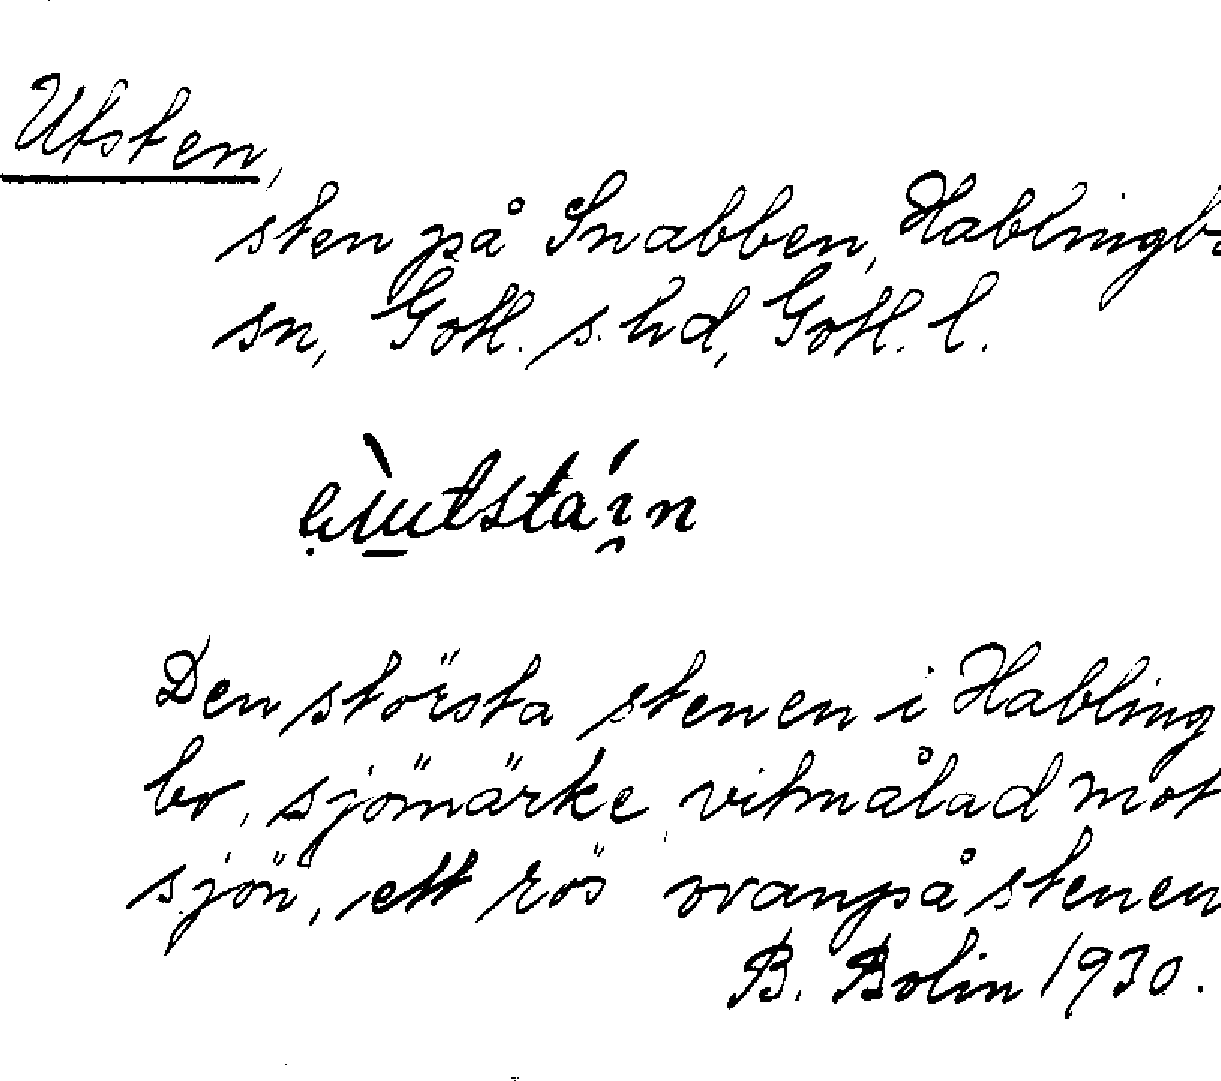 Utsten,
sten på Snabben, Hablingbo
sn, Gotl. s. hd, Gotl. l.
Den största stenen i Habling
bo, sjömärke vitmålad mot
sjön, ett rös ovanpå stenen
B. Bolin 1930.